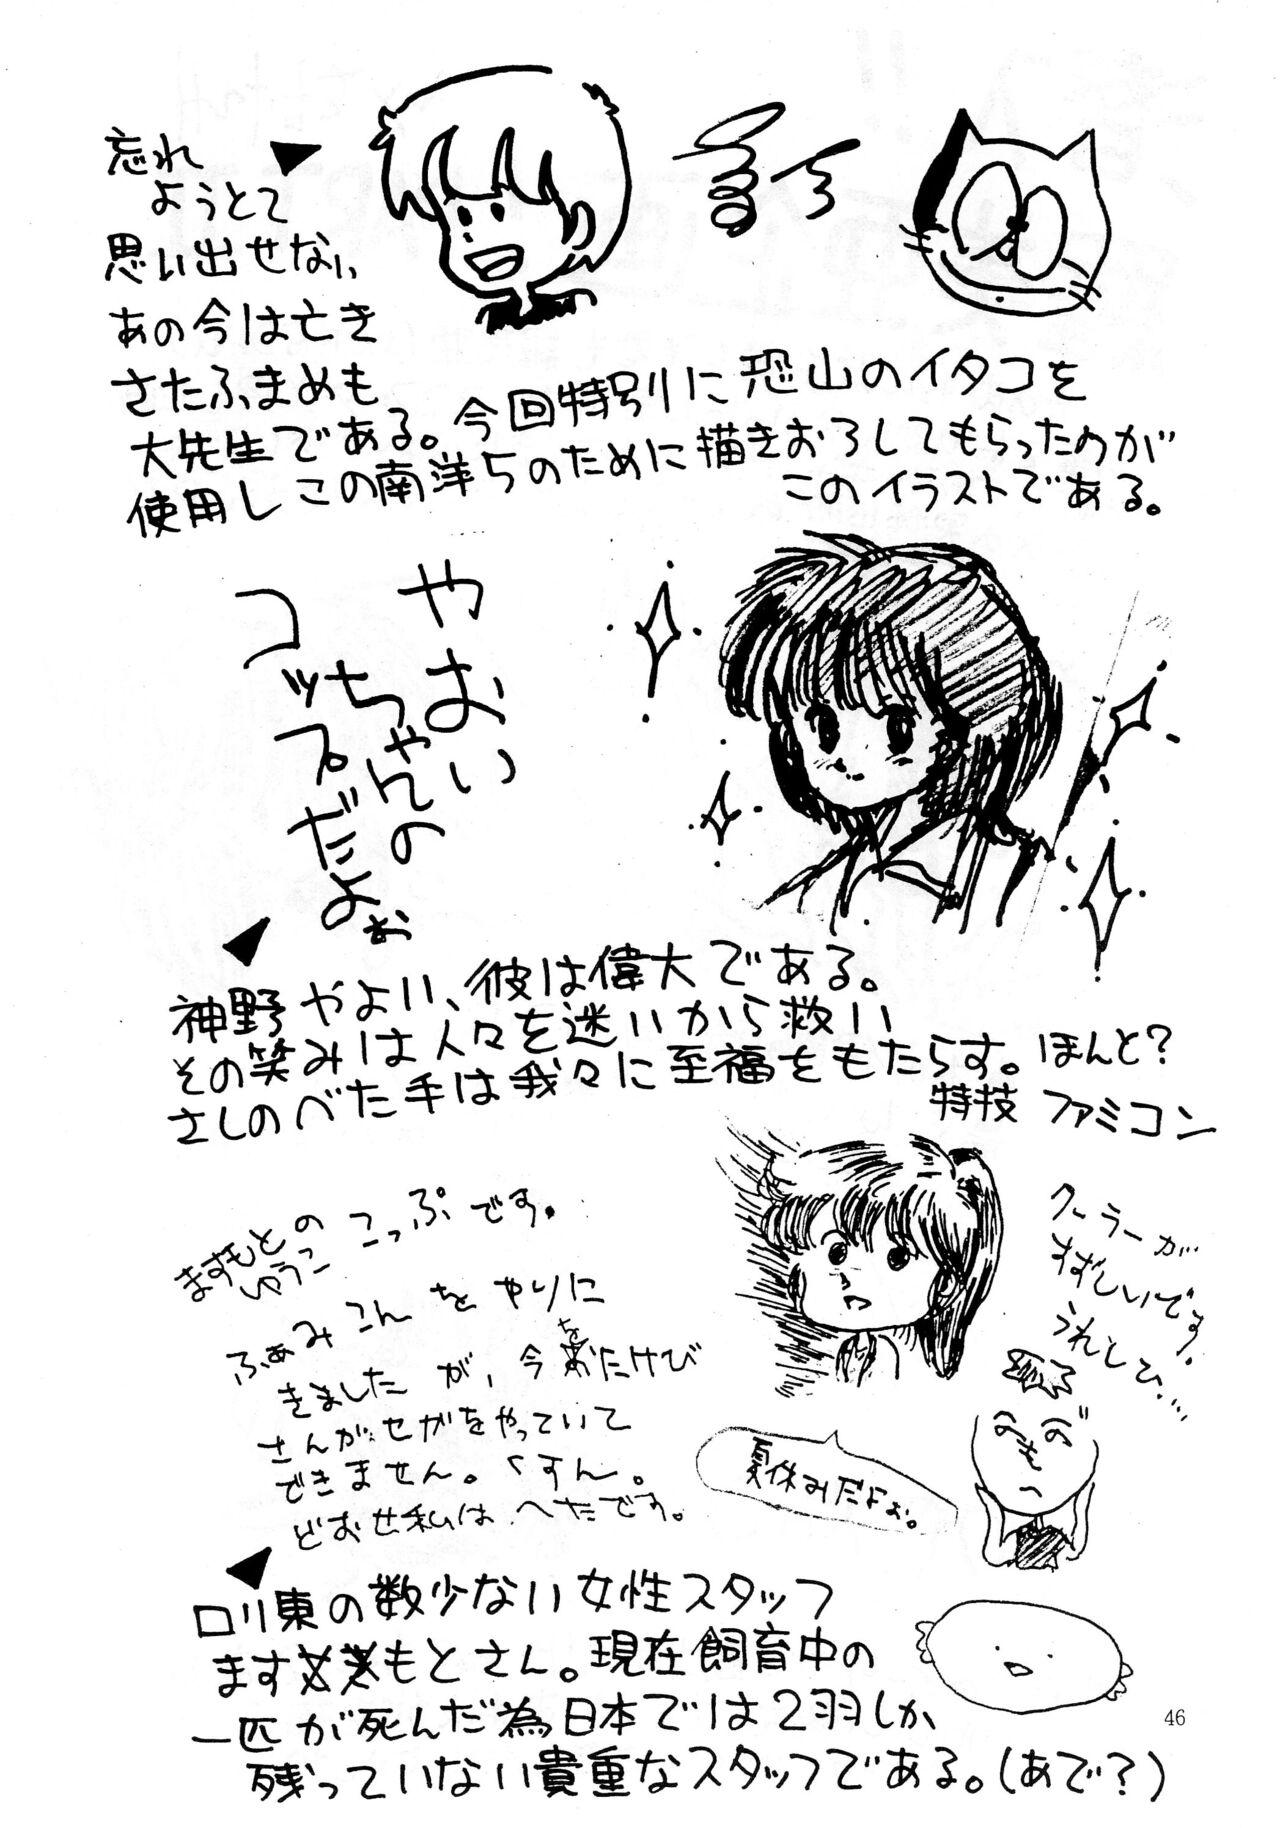 忘れ
ようとて
思い出せない
あの今は亡き
さたふまめも
大先生である。今回特別に恐山のイタコを
使用しこの南洋5のために描きおろしてもらったのが
このイラストである。
やおい
ちゃんの
コップだよぉ
神野やよい、彼は偉大である。
その笑みは人々を迷いから救い
さしのべた手は我々に至福をもたらす。ほんと?
特技 ファミコン
ますもとの
ゆうこ
こっぷです。
ふぁみこんをやりに
きましたが、今をおたけび
さんがセガをやっていて
できません。くすん。
どおせ私は、へたです。
クーラーが
すずしいです。
うれしひ…
夏休みだよぉ。
へのへの
もへ
ロリ東の数少ない女性スタッフ
ますもとさん。現在飼育中の
一匹が死んだ為日本では2羽しか
残っていない貴重なスタッフである。(あで?)
46